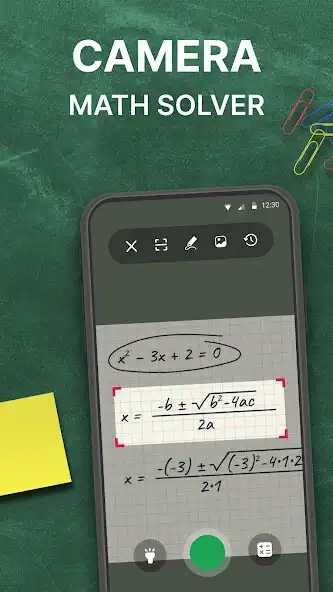 CAMERA
MATH SOLVER
12:30
x² - 3x + 2 = 0
x = -b ± √b²-4ac
2a
x = -(-3) ± √(-3)²-4·1·2
2·1